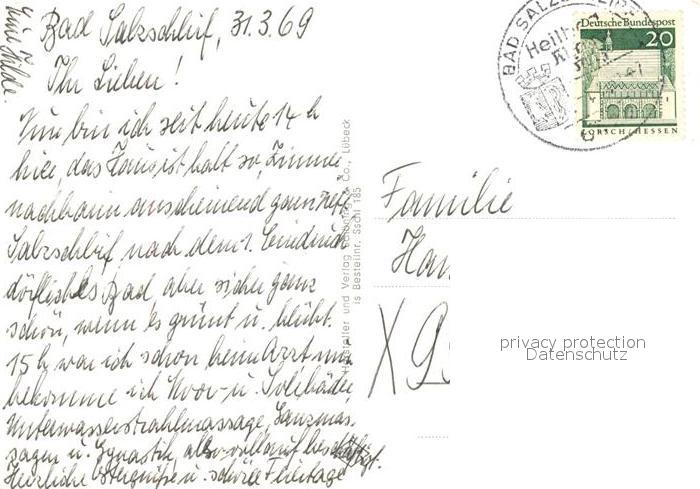 Bad Salzschlirf, 31.3.69
Ihr Lieben!
Nun bin ich seit heute 14 h
hier, das Haus ist halt so, Zimmer
nachbarin anscheinend ganz nett
Salzschlirf nach dem 1. Eindruck
dörfliches Bad aber sicher ganz
schön, wenn es grünt u. blüht.
15 h war ich schon beim Arzt nun
bekomme ich Moor- u. Solebäder,
Unterwasserstrahlmassage, Ganzmas-
sagen u. Gynastik, also vollauf beschäftigt.
Herzliche Ostergrüße u. schöne Feiertage
Eure Hilde.
Hersteller und Verlag Schöning & Co., Lübeck
Bestellnr. Sschl 185
BAD SALZSCHLIRF
Heilb
Deutsche Bundespost
20
LORSCH/HESSEN
Familie
Han
X 9
privacy protection
Datenschutz